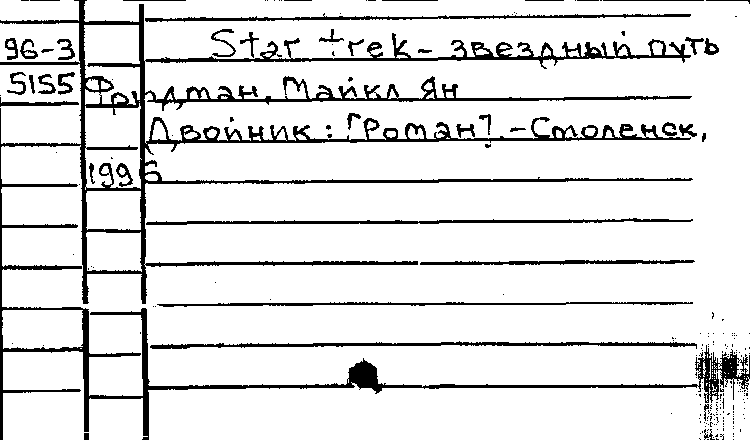 96-3 Star trek - звездный путь
5155 Фридман, Майкл Ян
Двойник: [Роман]. - Смоленск,
1996